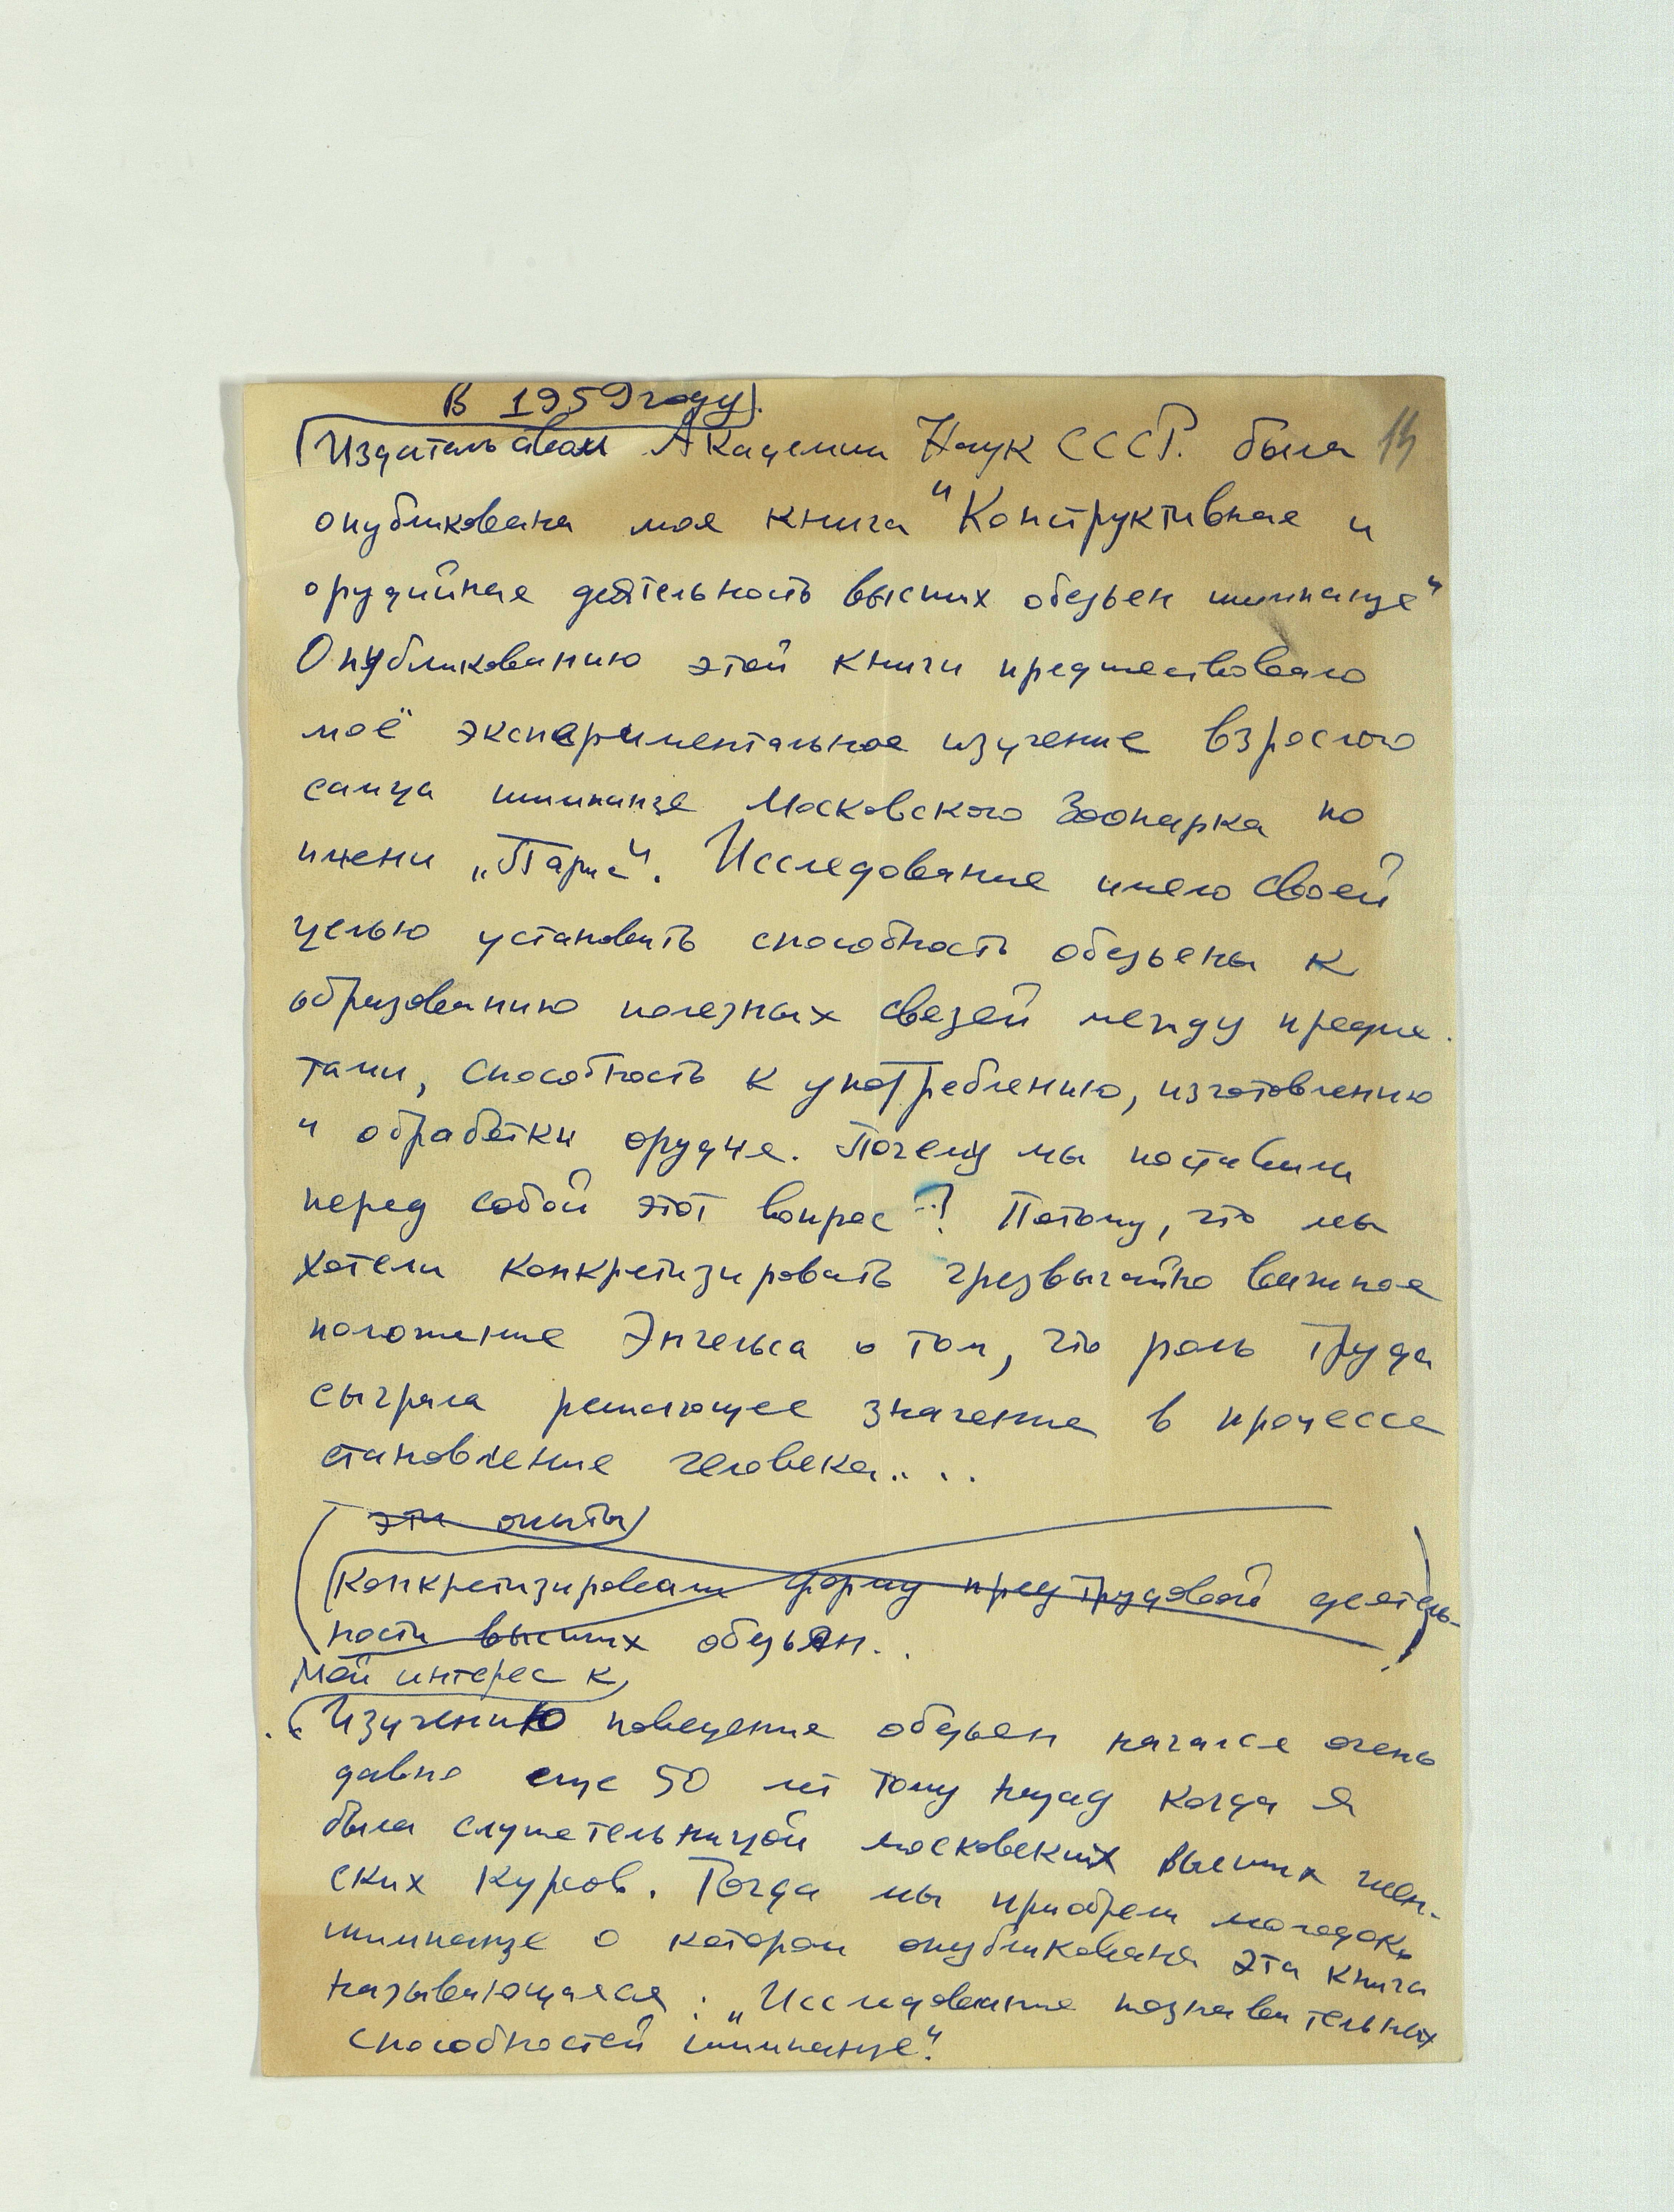 В 1959 году
Издательством Академии Наук СССР. была 13
опубликована моя книга "Конструктивная и
орудийная деятельность высших обезьян шимпанзе"
Опубликованию этой книги предшествовало
моё экспериментальное изучение взрослого
самца шимпанзе Московского Зоопарка по
имени „Парис". Исследование имело своей
целью установить способность обезьяны к
образованию полезных связей между предме-
тами, способность к употреблению, изготовлению
и обработки орудия. Почему мы поставили
перед собой этот вопрос? Потому, что мы
хотели конкретизировать чрезвычайно важное
положение Энгельса о том, что роль труда
сыграла решающее значение в процессе
становление человека....
эти опыты
Конкретизировали форму предтрудовой деятель-
ности высших обезьян..
Мой интерес к
Изучению поведение обезьян начался очень
давно еще 50 лет тому назад когда я
была слушательницей московских высших жен-
ских курсов. Тогда мы приобрели молодого
шимпанзе о котором опубликована эта книга
называющаяся: „Исследование познавательных
способностей шимпанзе".